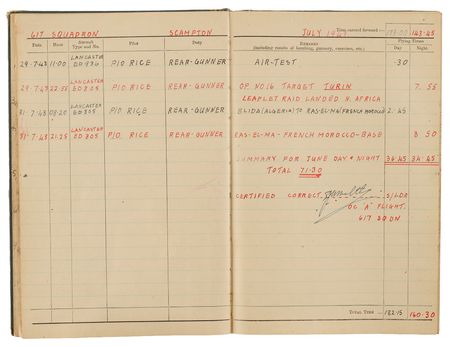 617 SQUADRON SCAMPTON JULY 1943 Time carried forward :— 143·45
Date Hour Aircraft Type and No. Pilot Duty REMARKS (including results of bombing, gunnery, exercises, etc.) Flying Times Day Night
29·7·43 11·00 LANCASTER P/O RICE REAR-GUNNER AIR-TEST ·30
29·7·43 LANCASTER ED305 P/O RICE REAR-GUNNER OP. NO 16 TARGET TURIN 7·55
LEAFLET RAID LANDED N. AFRICA
LANCASTER ED305 P/O RICE REAR-GUNNER BLIDA (ALGERIA) TO RAS-EL-MA (FRENCH MOROCCO) 2·45
31·7·43 21·25 LANCASTER ED305 P/O. RICE REAR-GUNNER RAS-EL-MA-FRENCH MOROCCO-BASE 8·50
SUMMARY FOR JUNE DAY & NIGHT 36·45 34·45
TOTAL 71·30
CERTIFIED CORRECT S/LDR
OC "A" FLIGHT.
617 SQDN
TOTAL TIME 182·15 160·30